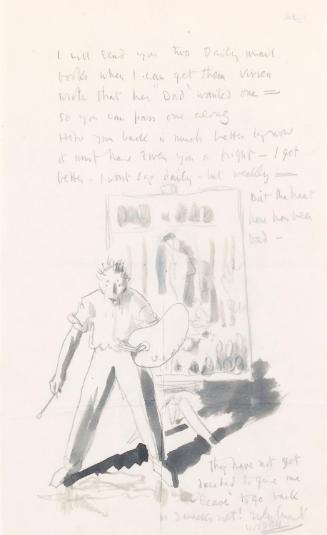 I will send you two Daily Mail
books when I can get them Vivien
wrote that her "Dad" wanted one =
so you can pass one along
Hope your back is much better by now
it must have given you a fright - I get
better - I wont say daily - but weekly =
But the heat
here has been
bad -
They have not yet
decided to give me
"leave" to go back
3 weeks yet!